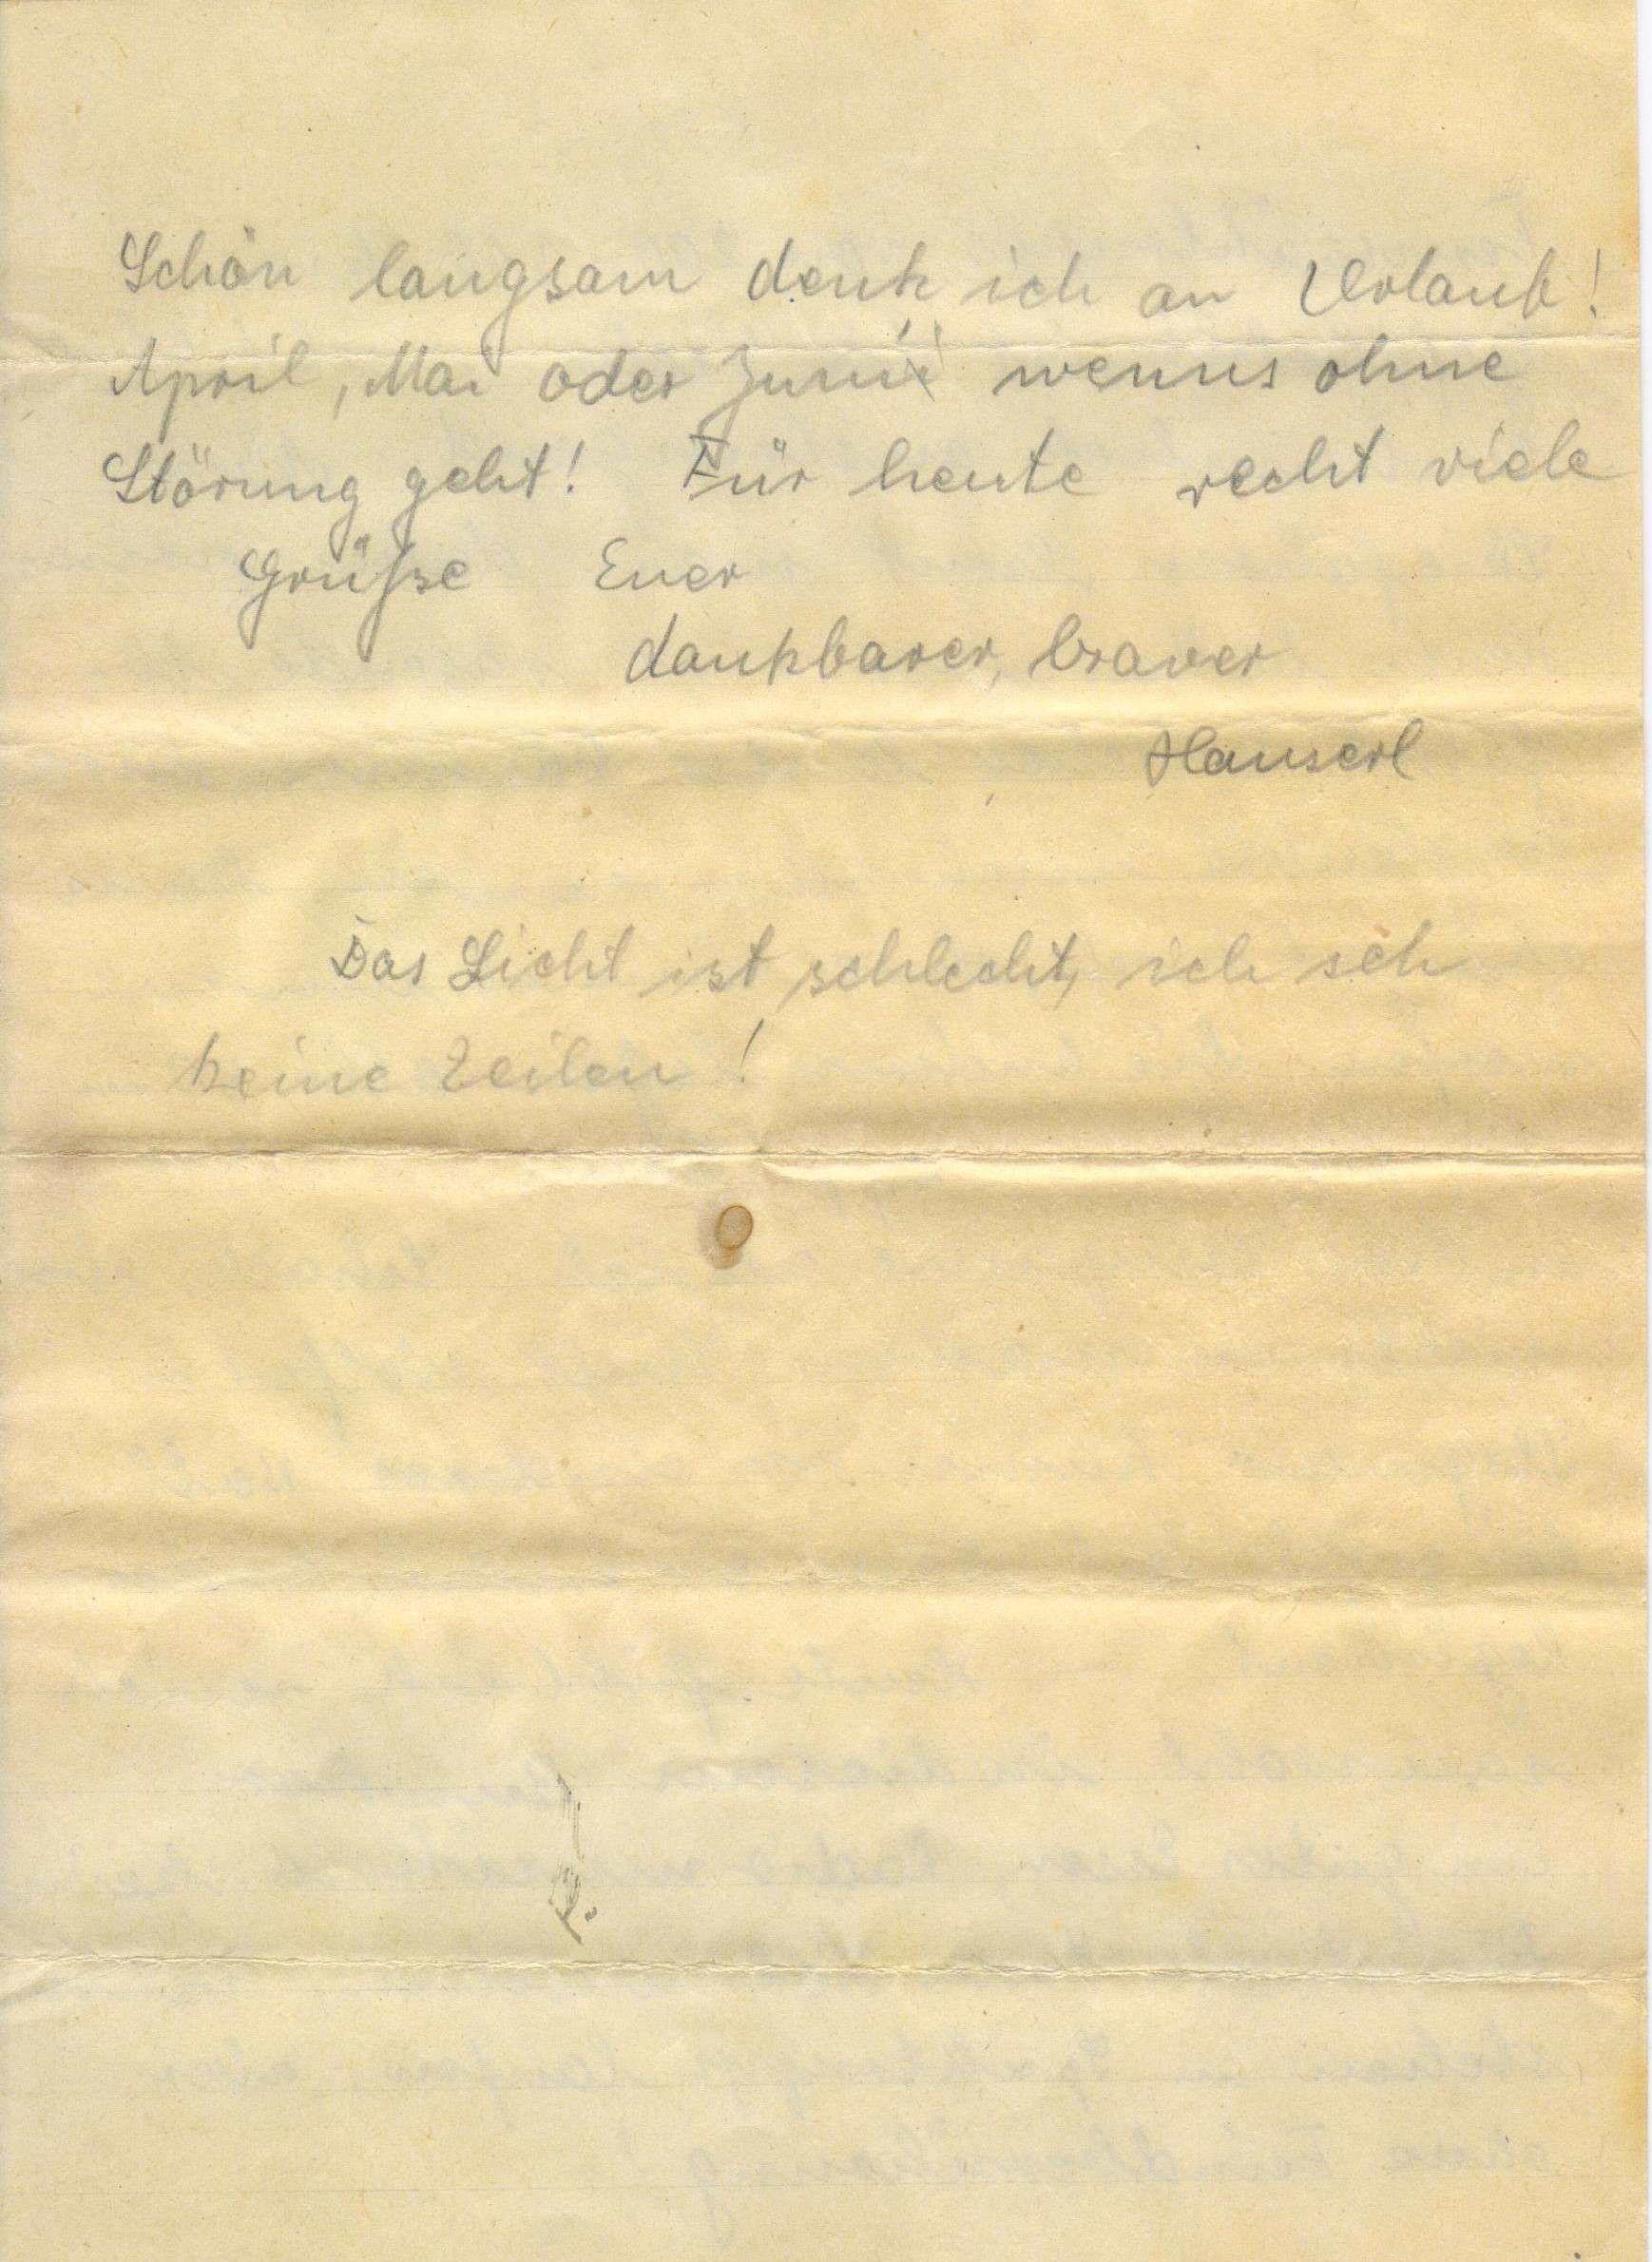 Schön langsam denk ich an Urlaub!
April, Mai oder Juni wenns ohne
Störung geht! Für heute recht viele
Grüße Euer
dankbarer, braver
Hanserl
Das Licht ist schlecht, ich seh
keine Zeilen!